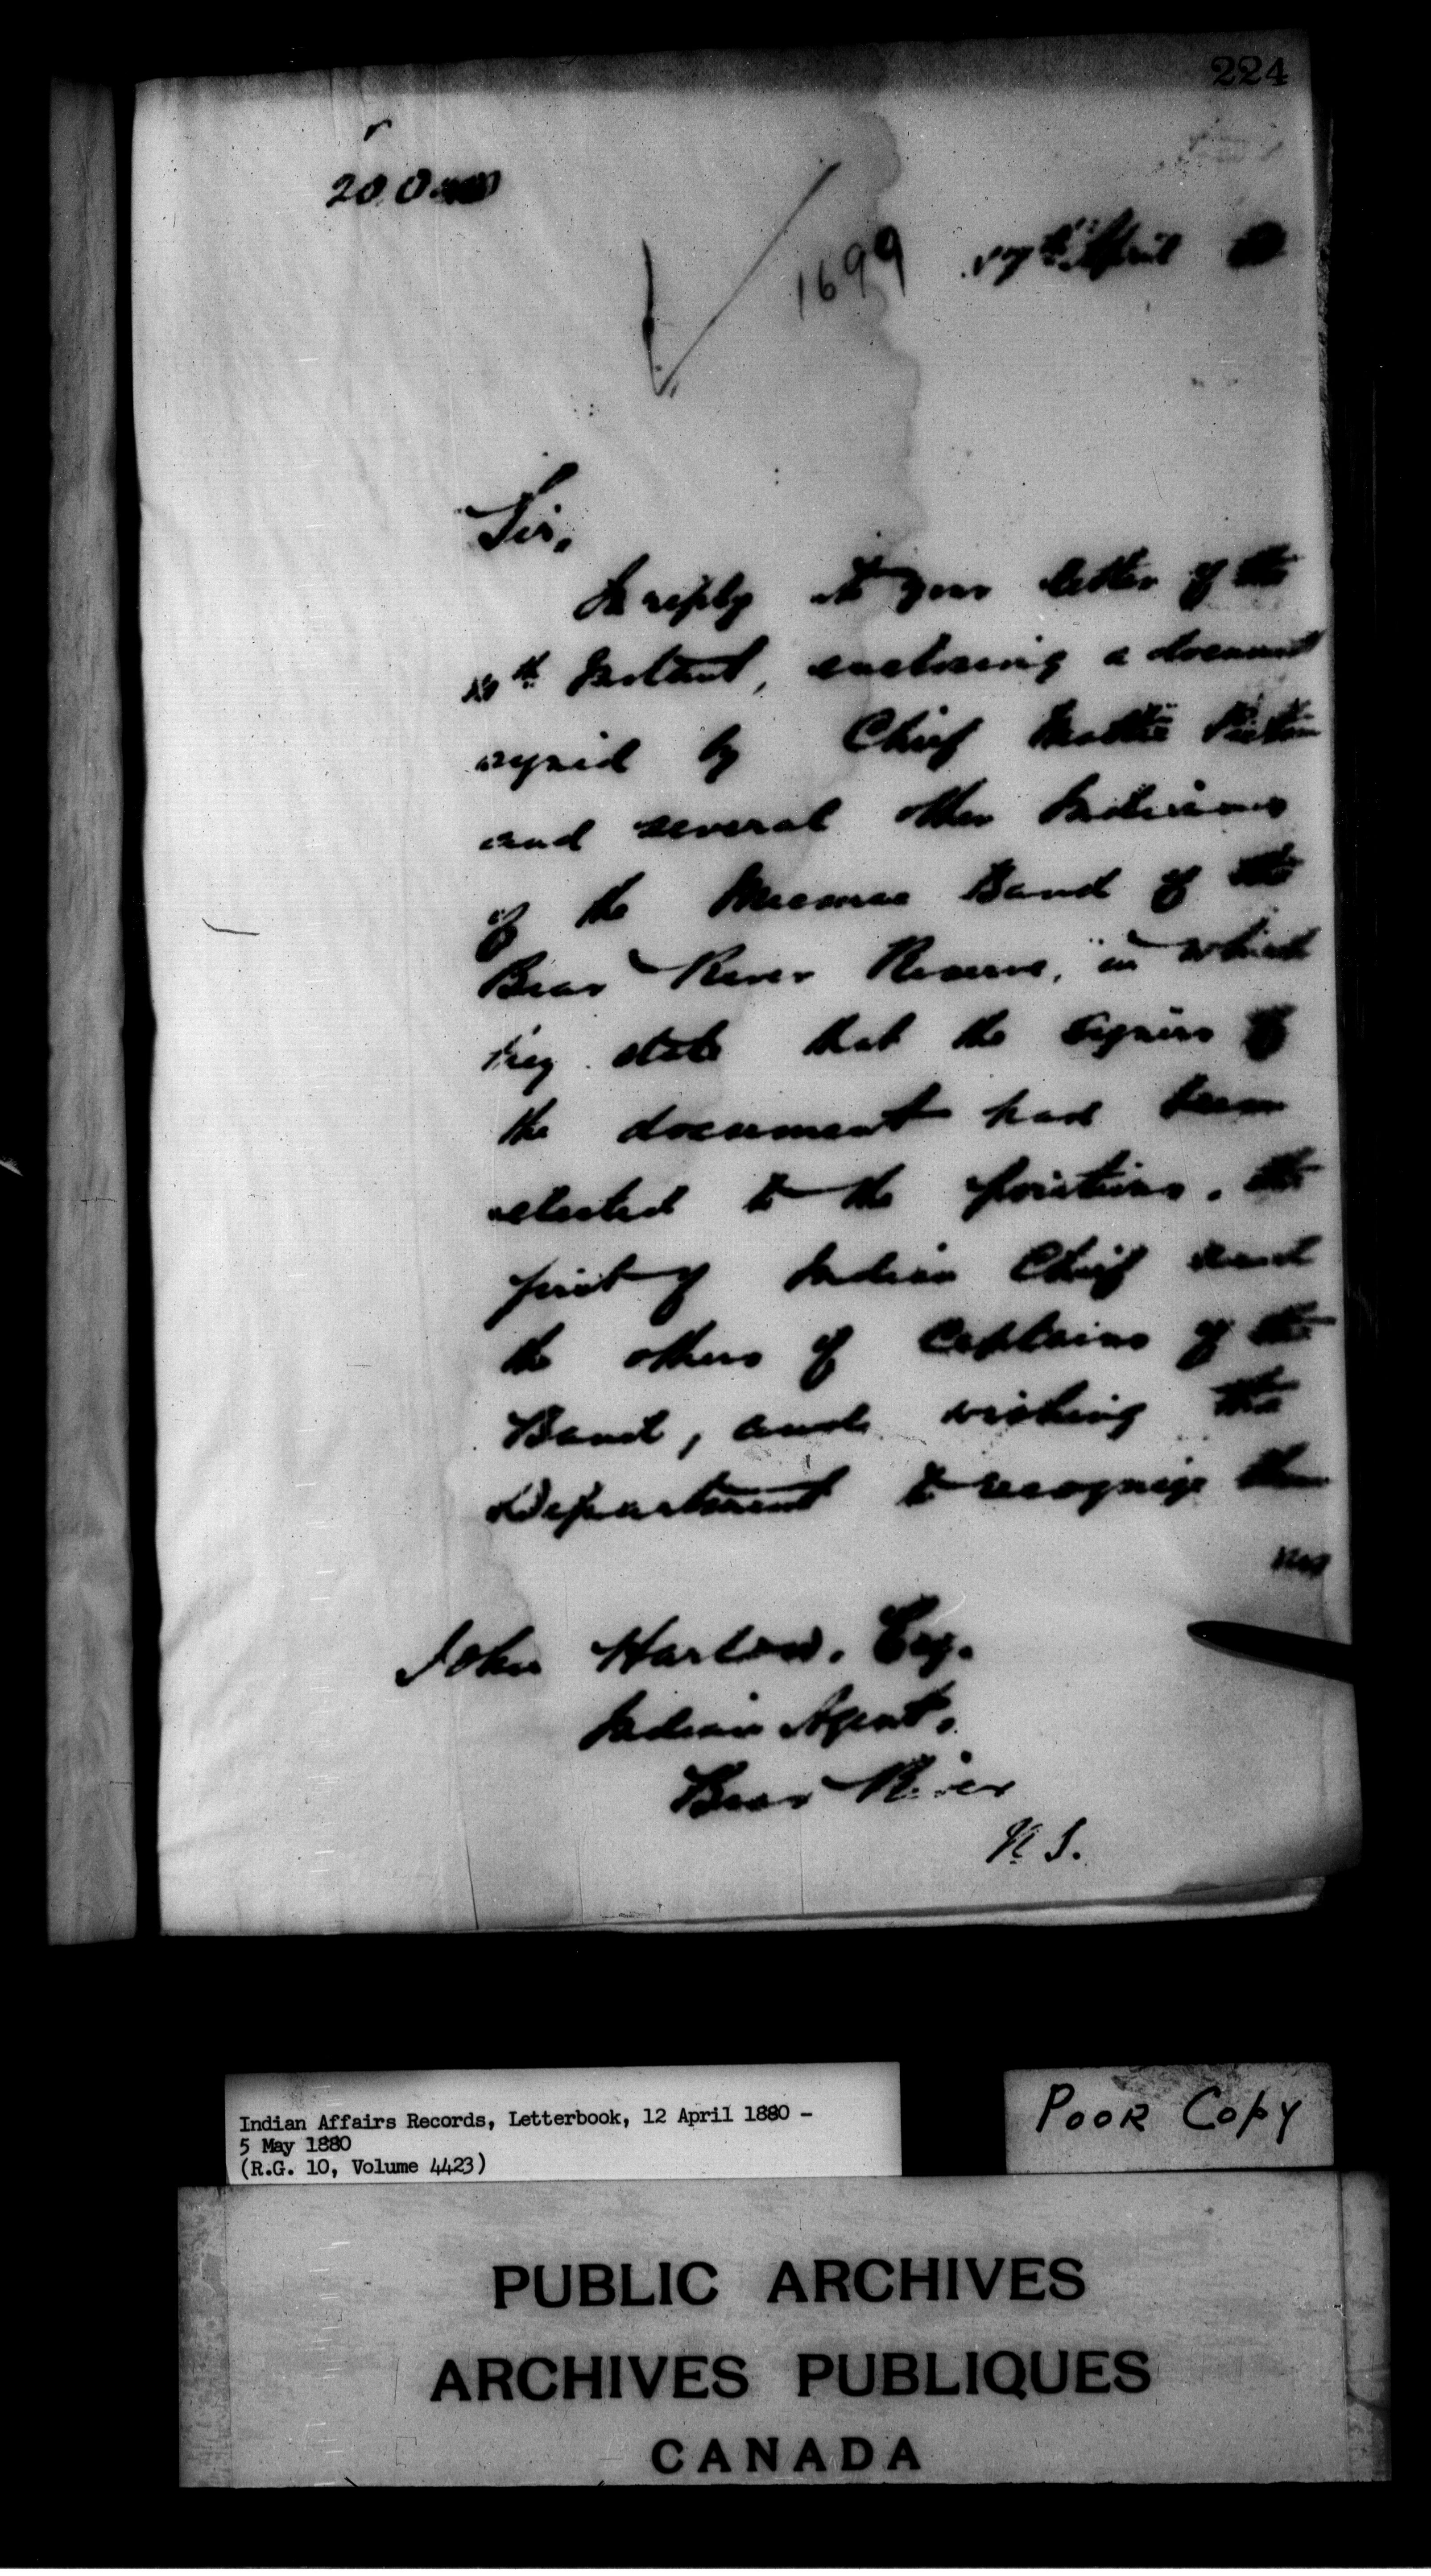 224
1699
April
Sir,
In reply to your letter of the
Instant, enclosing a document
signed by Chief
and several other Indians
of the Micmac Band of the
Bear River Reserve, in which
they state that the signers of
the document had been
elected to the positions, the
first of Indian Chief and
the others of Captains of the
Band, and wishing the
Department to recognize them
John Harlow, Esq.
Indian Agent,
Bear River
N.S.
Indian Affairs Records, Letterbook, 12 April 1880 -
5 May 1880
(R.G. 10, Volume 4423)
POOR COPY
PUBLIC ARCHIVES
ARCHIVES PUBLIQUES
CANADA